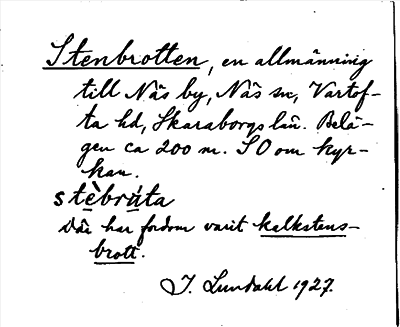 Stenbrotten, en allmänning
till Nås by, Nås sn, Vartof-
ta hd, Skaraborgs län. Belä-
gen ca 200 m. SO om kyr-
kan.
stèbrúta
Där har fordom varit kalkstens-
brott.
J. Lundahl 1927.